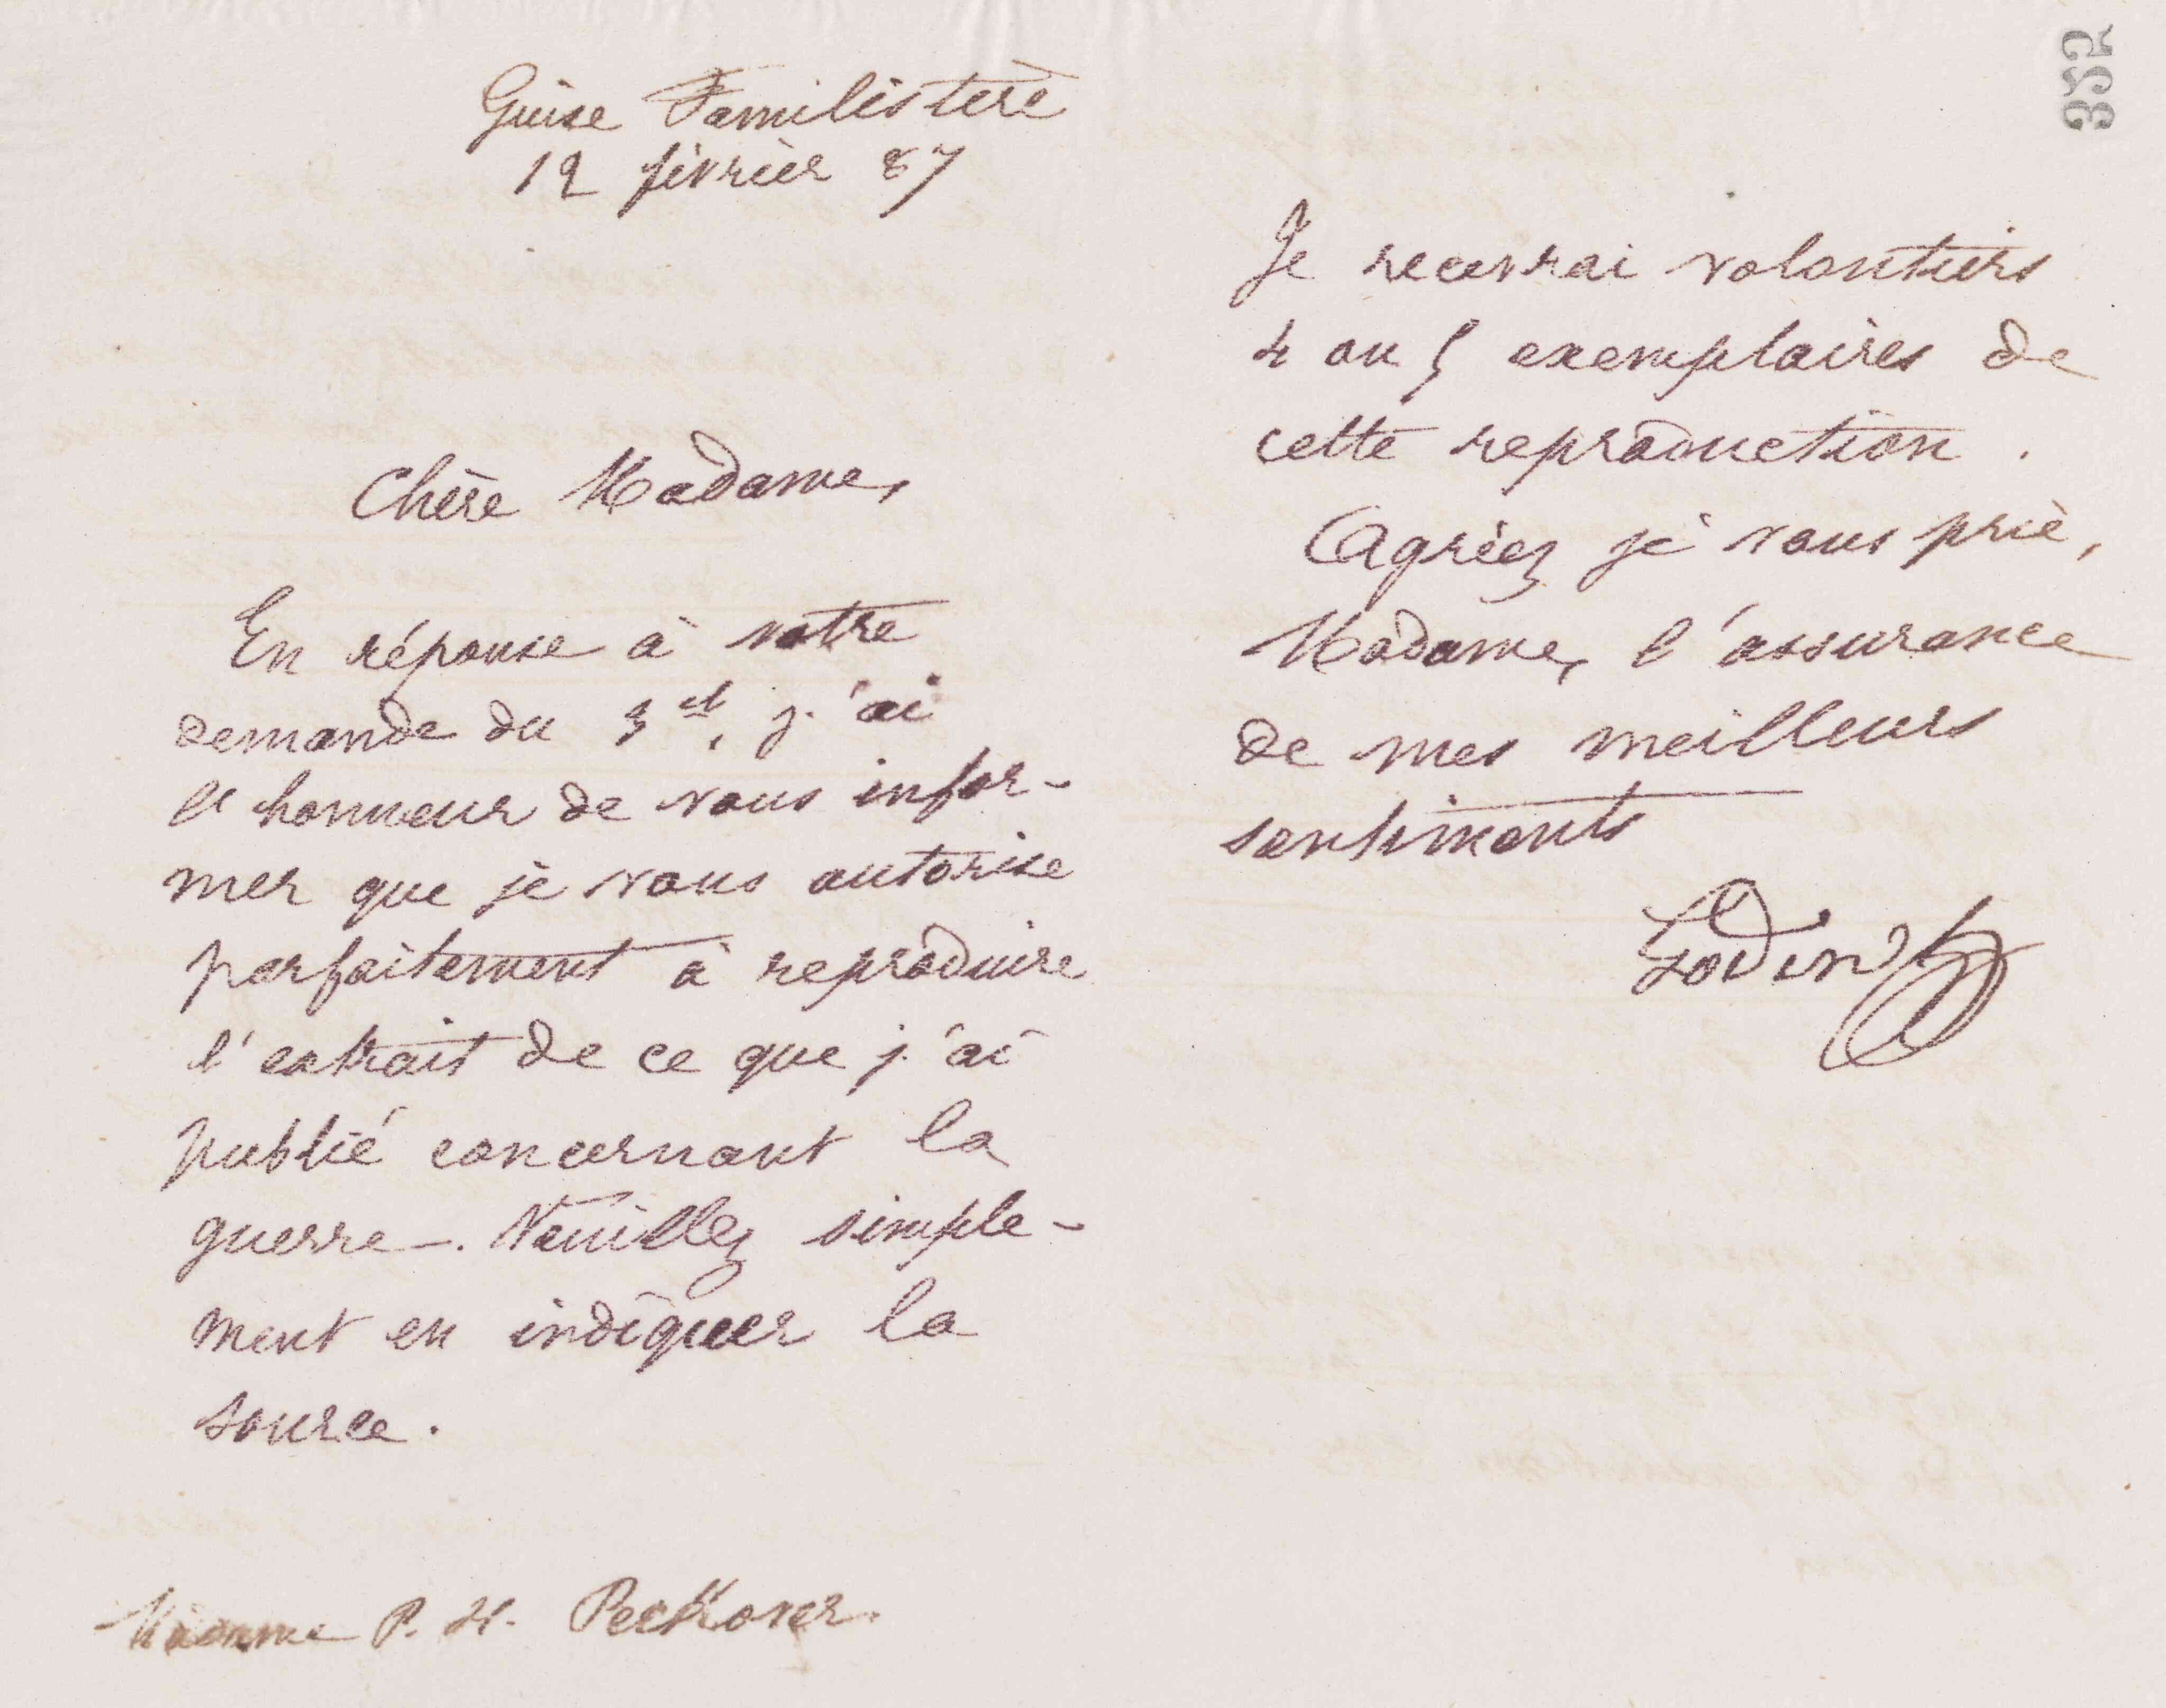 Guise Familistère
12 février 87
Chère Madame,
En réponse à votre
demande du 3 ct, j'ai
l'honneur de vous infor-
mer que je vous autorise
parfaitement à reproduire
l'extrait de ce que j'ai
publié concernant la
guerre. Veuillez simple-
ment en indiquer la
source.
Madame P. H. Peckover.
355
Je recevrai volontiers
4 ou 5 exemplaires de
cette reproduction.
Agréez je vous prie,
Madame, l'assurance
de mes meilleurs
sentiments
Godin